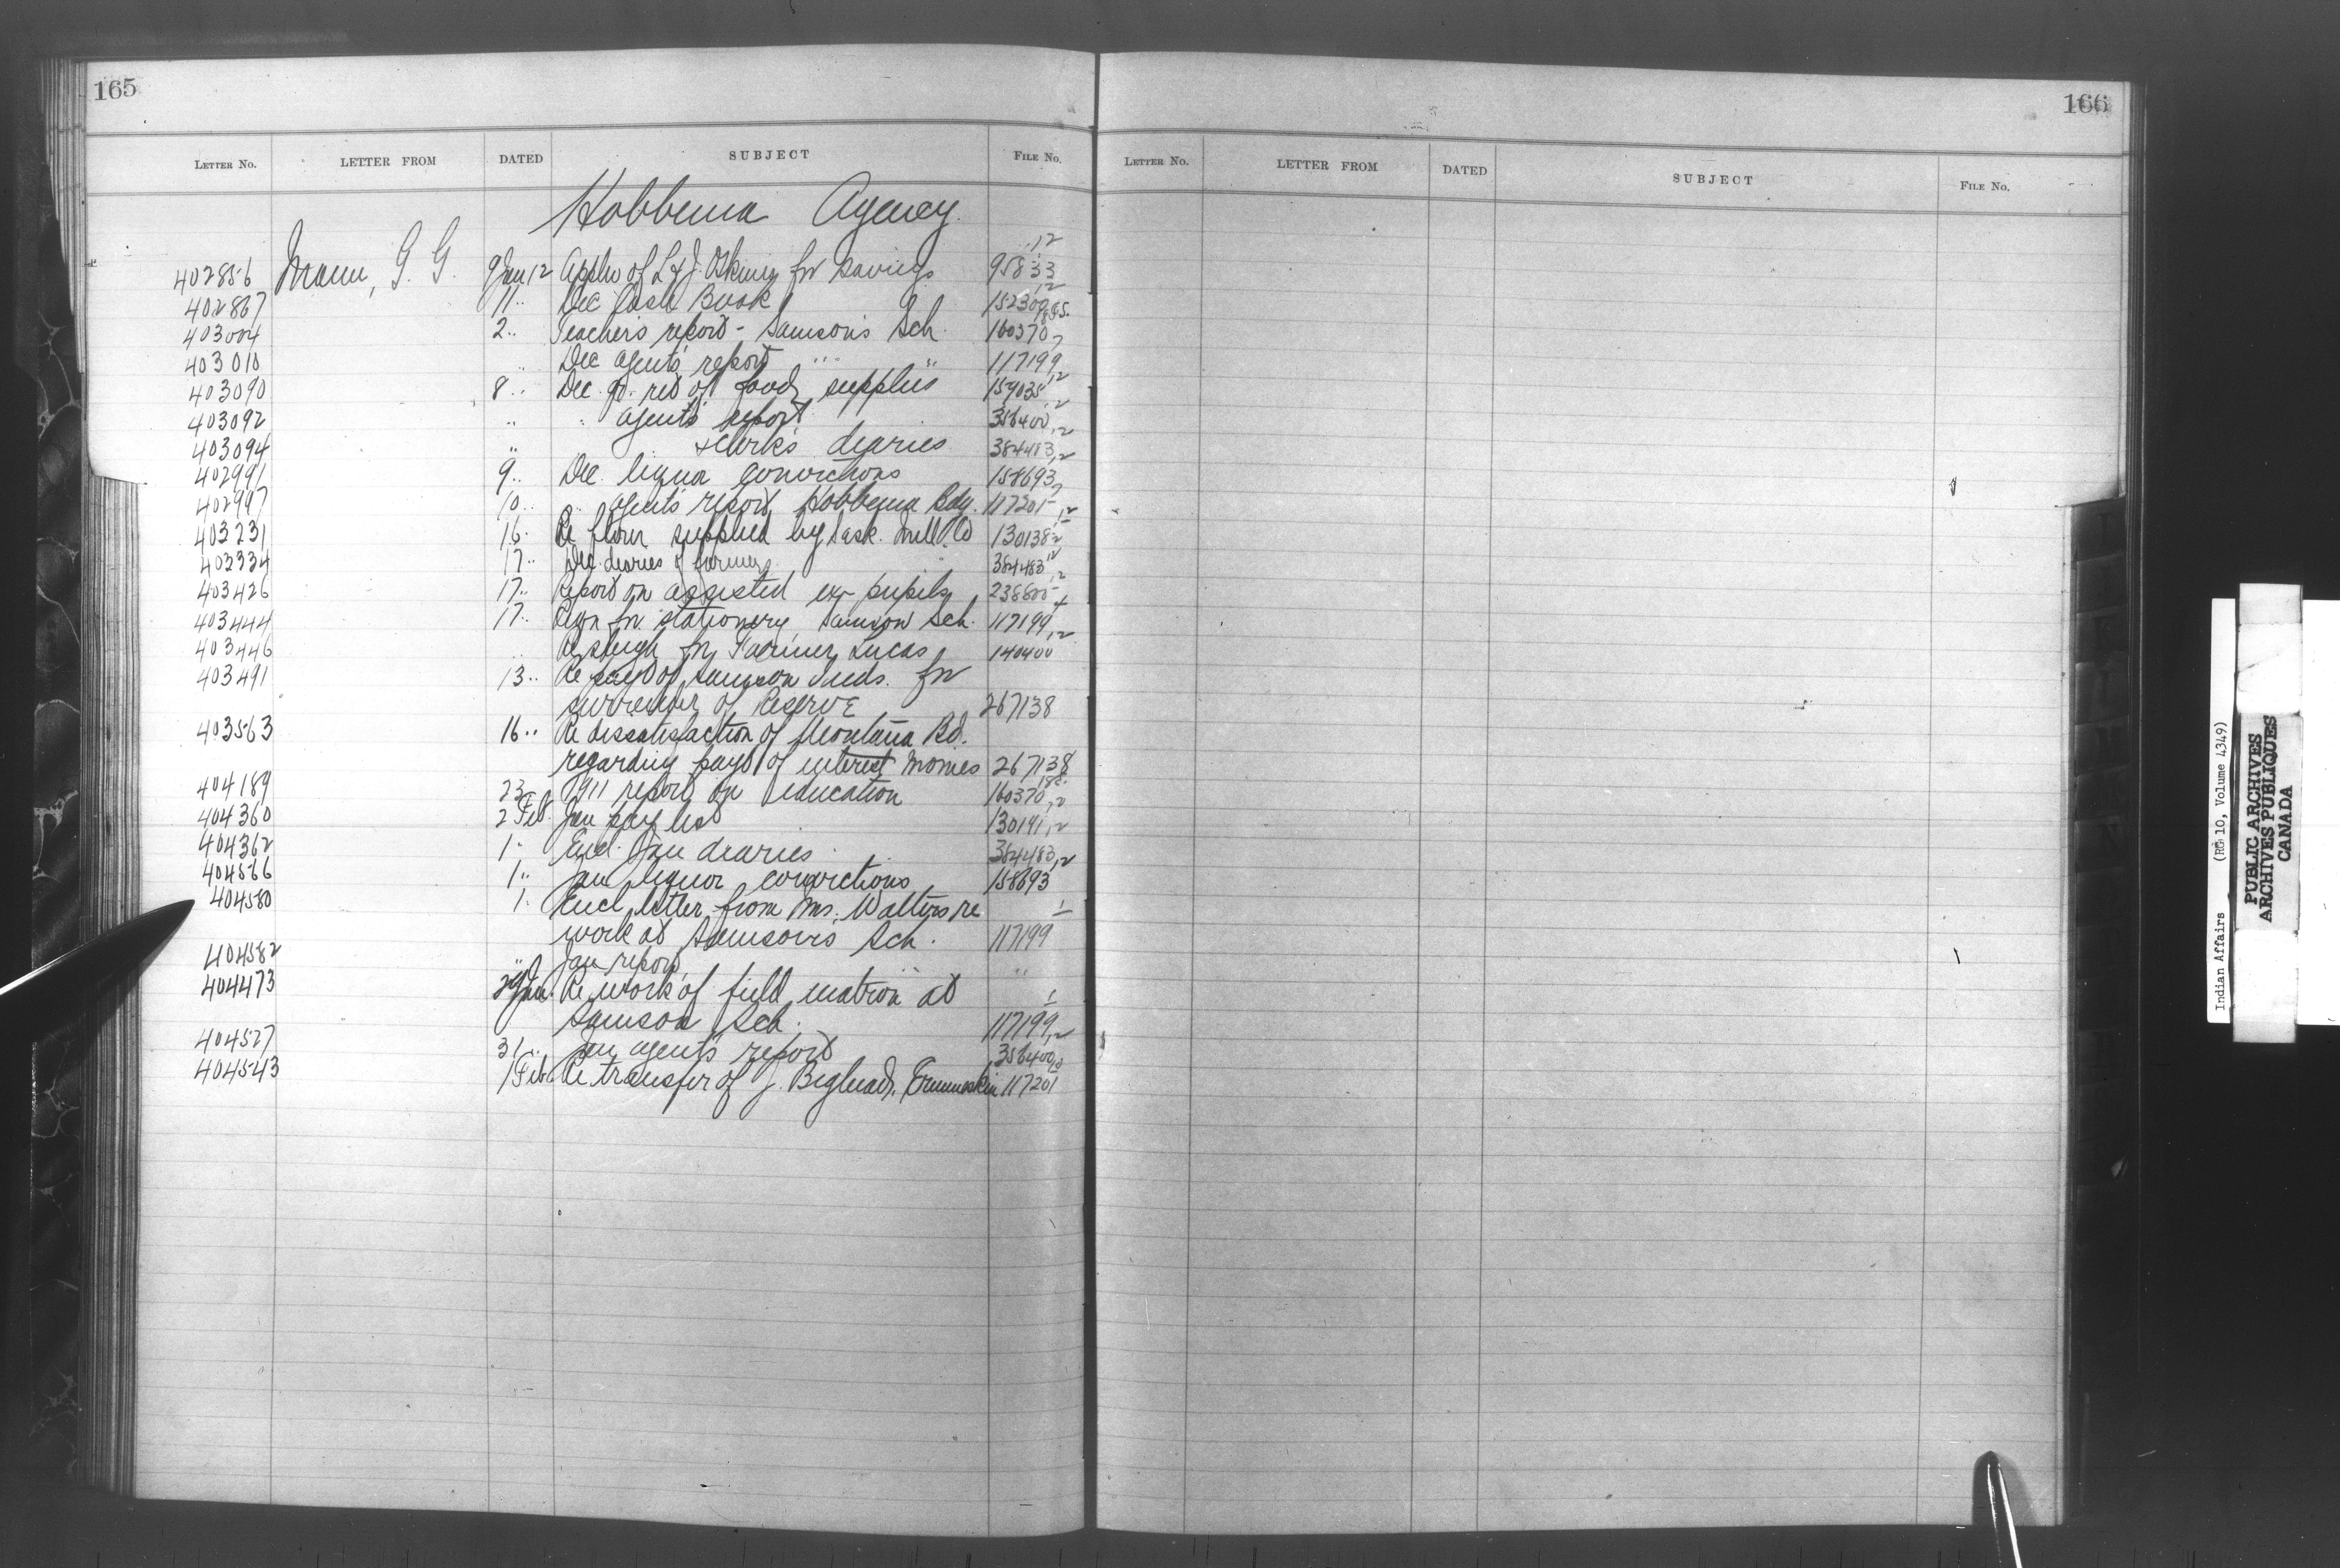 165
LETTER NO. LETTER FROM DATED SUBJECT FILE NO.
Hobbema Agency
402856 Mann, G. G. 9 Jan 12 Applw of L & J. for Savings 95833 12
402867 11 " Dec Cash Book 152309 12
403004 2 " Teacher's report - Samson's Sch. 160370
403010 " Dec agent's report " " 117199 7
403090 8 " Dec. qr. ret of food supplies 159035 12
403092 " " agent's report 356400 12
403094 " & Clerk's diaries 384483 12
402991 9 " Dec. liquor convictions 158693 12
402997 10 " " agent's report, Hobbema Bdg. 117201 7
403231 16 " Re flour supplied by Sask. Mill Co 130138
403334 17 " Dec. diaries of farmers 384483 12
403426 17 " Report on assisted ex-pupils 238800 12
403444 17 " Reqn for stationery Samson Sch. 117199
403446 " Re sleigh for Farmer Lucas 140400 12
403491 13 " Re payt of Samson Inds. for
surrender of Reserve 267138
403563 16 " Re dissatisfaction of Montana Bd.
regarding payt of interest monies 267138
404189 23 " 1911 report on education 160370
404360 2 Feb. Jan pay list 130141 12
404362 1 " Encl. Jan diaries 384483 12
404566 1 " Jan liquor convictions 158693 12
404580 1 " Encl letter from Mrs. Walters re
work at Samson's Sch. 117199 1
404582 " Jan report " "
404473 29 Jan. Re work of field matron at
Samson Sch. 117199 1
404527 31 " Jan agent's report 356400 12
404543 1 Feb Re transfer of J. Bighead, Ermineskin 117201
166
LETTER NO. LETTER FROM DATED SUBJECT FILE NO.
Indian Affairs (RG 10, Volume 4349)
PUBLIC ARCHIVES
ARCHIVES PUBLIQUES
CANADA